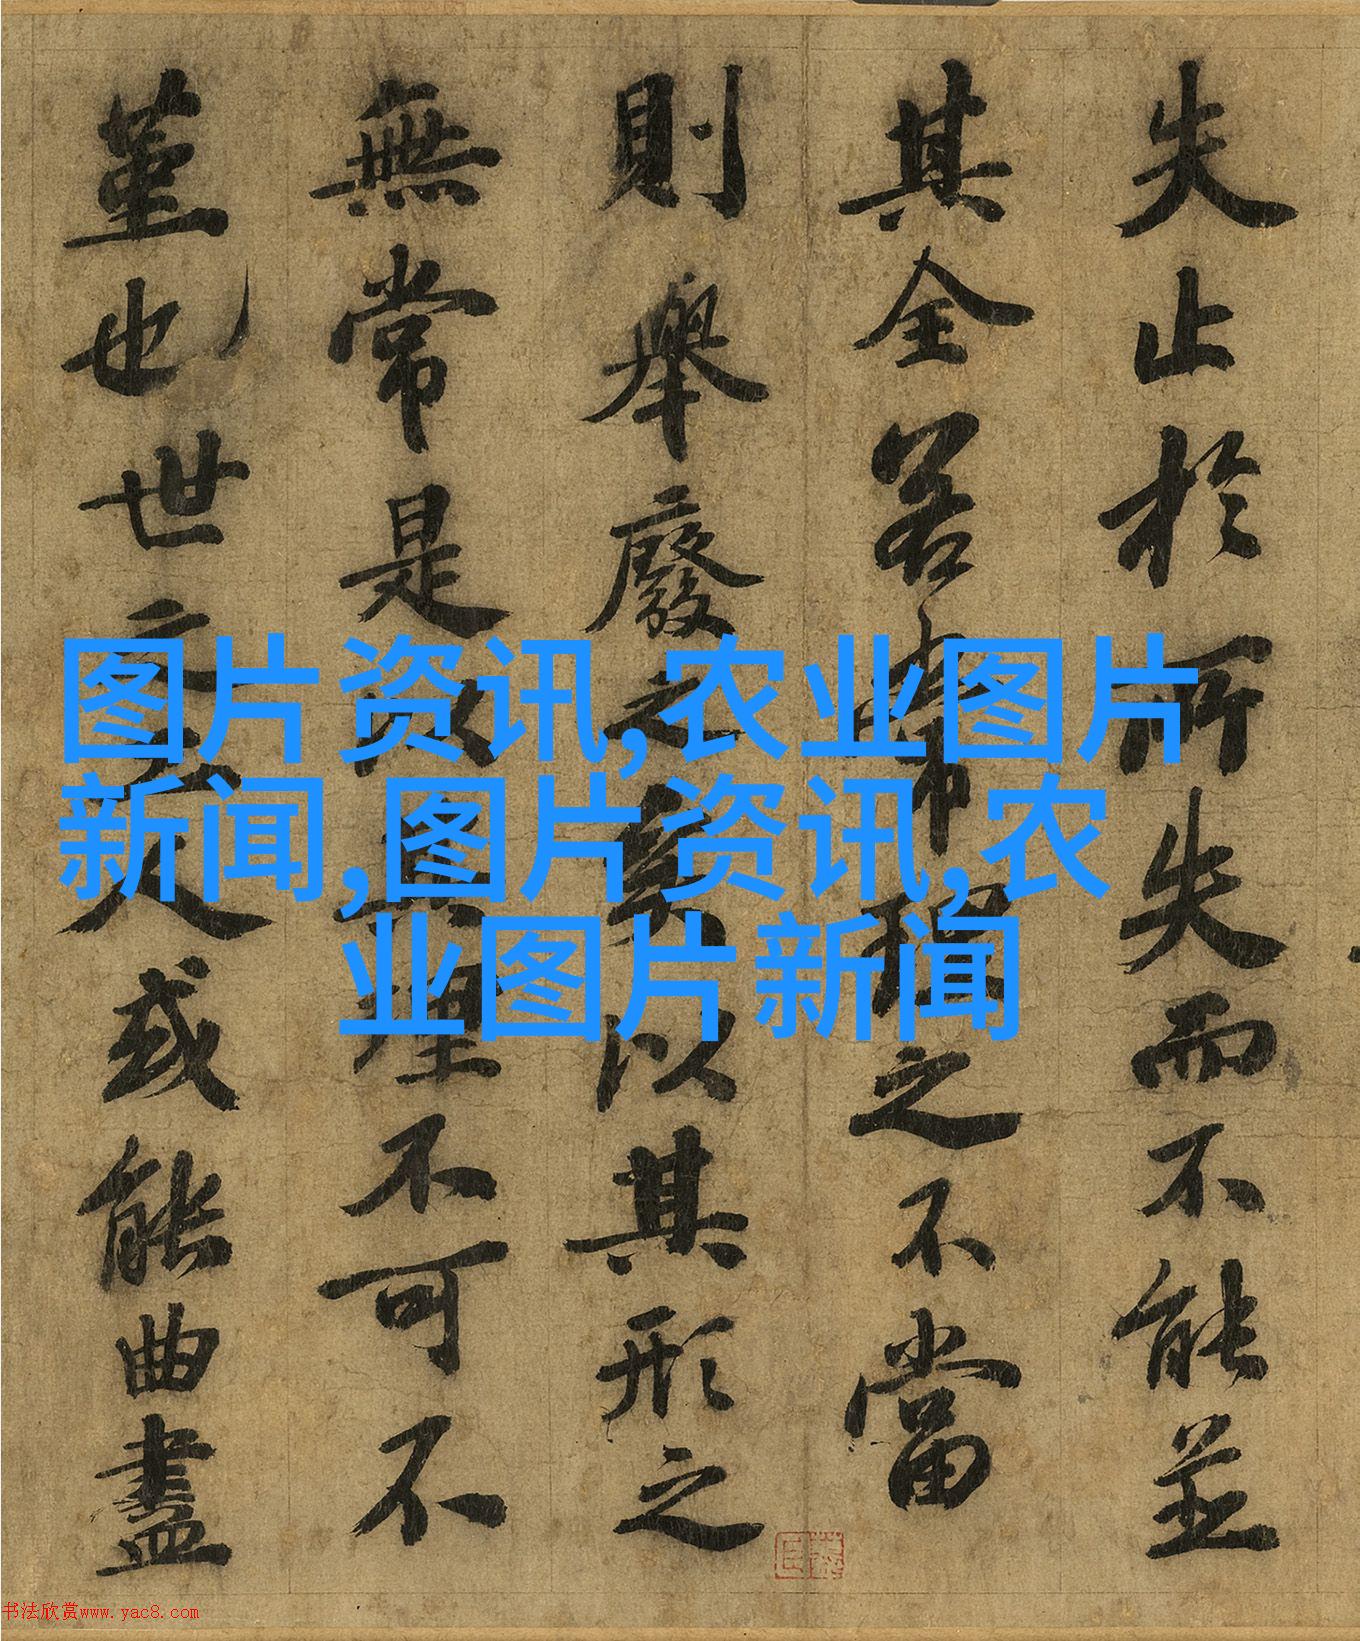 失止於所失而不能並
其全若常理之不當
則舉廢之矣以其形之
無常是以其理不可不
堇也世之工人或能曲盡
图片资讯,农业图片
新闻,图片资讯,农
业图片新闻
书法欣赏www.yac8.com